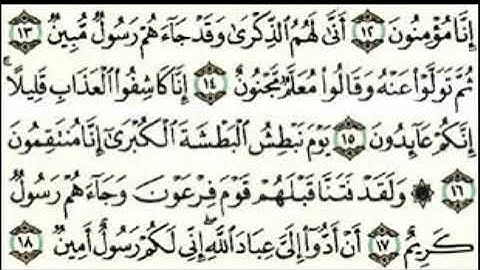 إِنَّا مُؤْمِنُونَ ١٢ أَنَّىٰ لَهُمُ ٱلذِّكْرَىٰ وَقَدْ جَآءَهُمْ رَسُولٌ مُّبِينٌ ١٣
ثُمَّ تَوَلَّوْا۟ عَنْهُ وَقَالُوا۟ مُعَلَّمٌ مَّجْنُونٌ ١٤ إِنَّا كَاشِفُوا۟ ٱلْعَذَابِ قَلِيلًا ۚ
إِنَّكُمْ عَآئِدُونَ ١٥ يَوْمَ نَبْطِشُ ٱلْبَطْشَةَ ٱلْكُبْرَىٰٓ إِنَّا مُنتَقِمُونَ
١٦ ۞ وَلَقَدْ فَتَنَّا قَبْلَهُمْ قَوْمَ فِرْعَوْنَ وَجَآءَهُمْ رَسُولٌ
كَرِيمٌ ١٧ أَنْ أَدُّوٓا۟ إِلَىَّ عِبَادَ ٱللَّهِ ۖ إِنِّى لَكُمْ رَسُولٌ أَمِينٌ ١٨